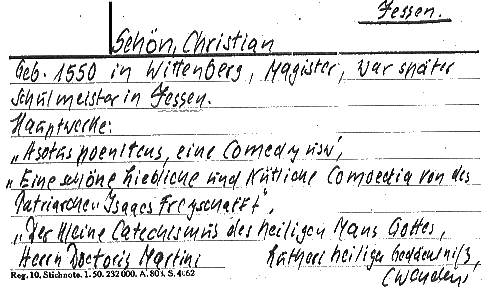 Jessen.
Schön, Christian
Geb. 1550 in Wittenberg, Magister, war später
Schulmeister in Jessen.
Hauptwerke:
„Asotus poenitens, eine Comedy usw,
„Eine schöne liebliche und Nützliche Comoedia von des
Patriarchen Isaacs Freyschafft",
„Der Kleine Catechismus des heiligen Mans Gottes,
Herrn Doctoris Martini Lutheri heiliger Gedächtniß,
Reg. 10, Stichnote. 1. 50. 232 000. A. 803. S. 4062